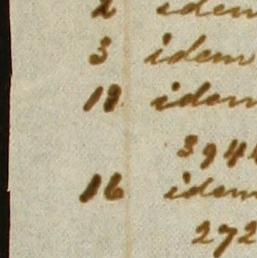 2 idem
3 idem
18 idem
394
16 idem
272